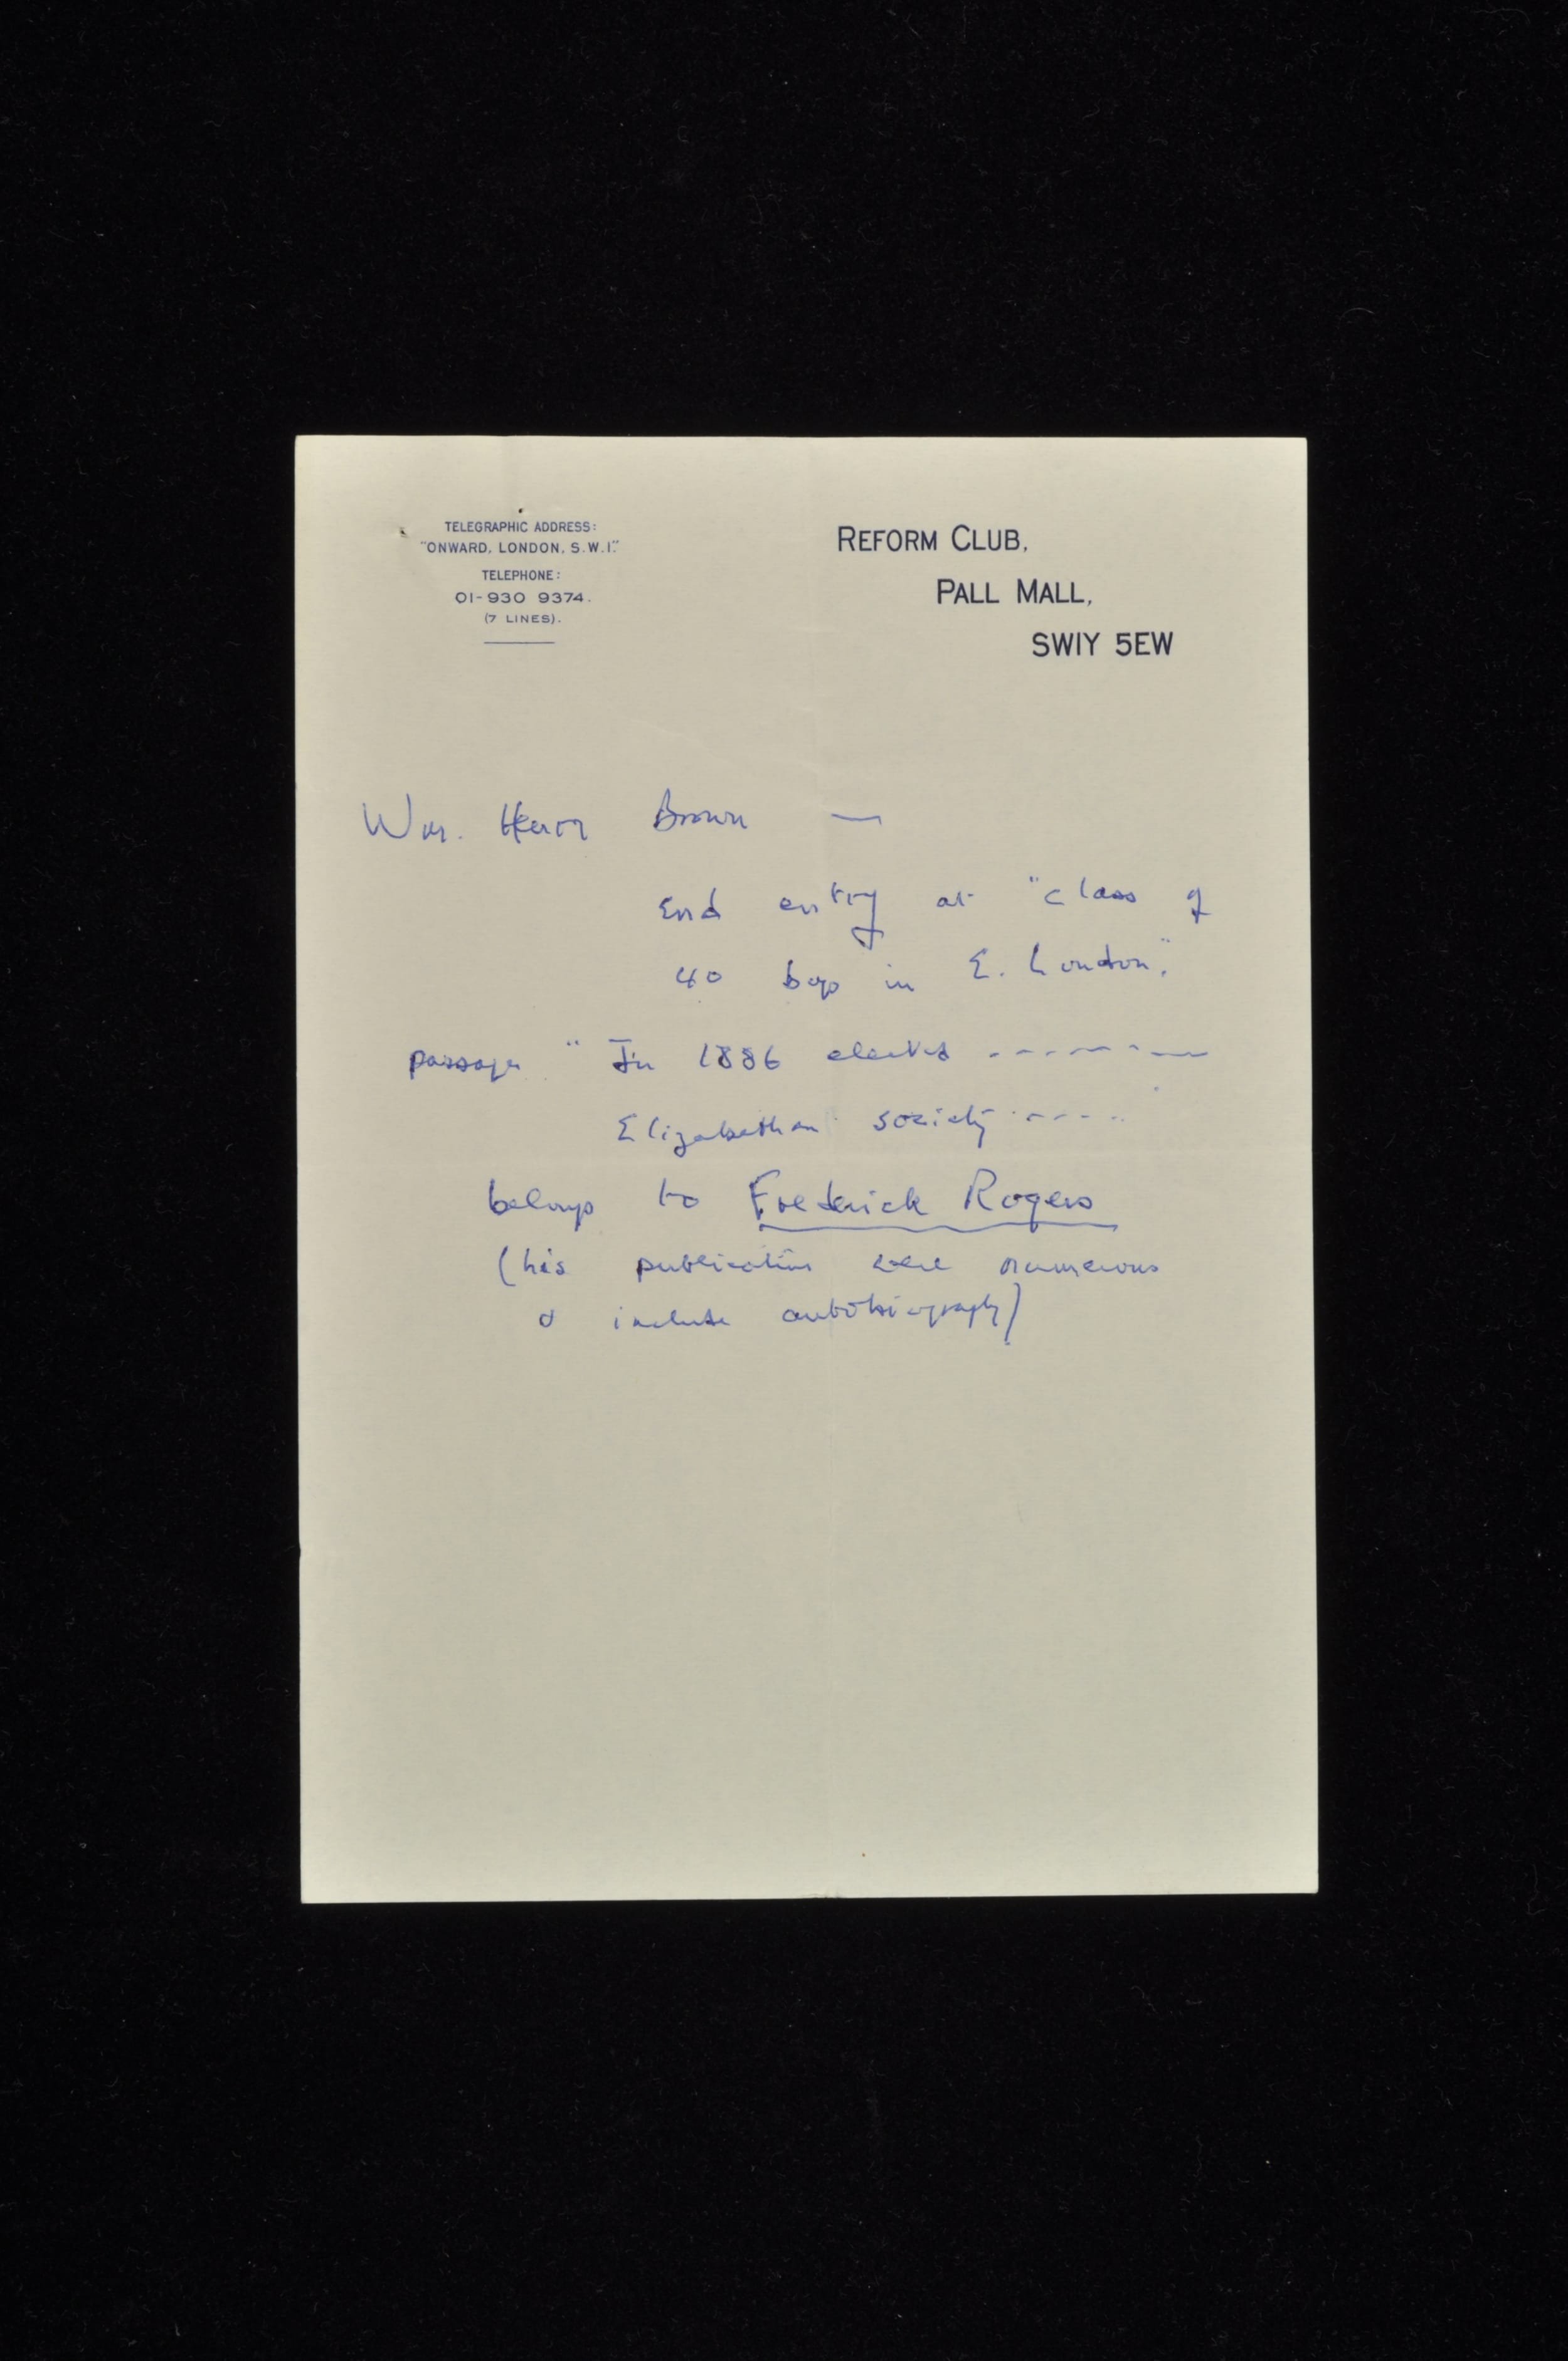 TELEGRAPHIC ADDRESS:
"ONWARD, LONDON, S.W.1."
TELEPHONE:
01-930 9374.
(7 LINES).
REFORM CLUB,
PALL MALL,
SW1Y 5EW
Wm. Henry Brown —
End entry at "class of
40 boys in E. London."
passage " In 1886 elected ---------
Elizabethan society -----
belongs to Frederick Rogers
(his publications were numerous
& include autobiography)